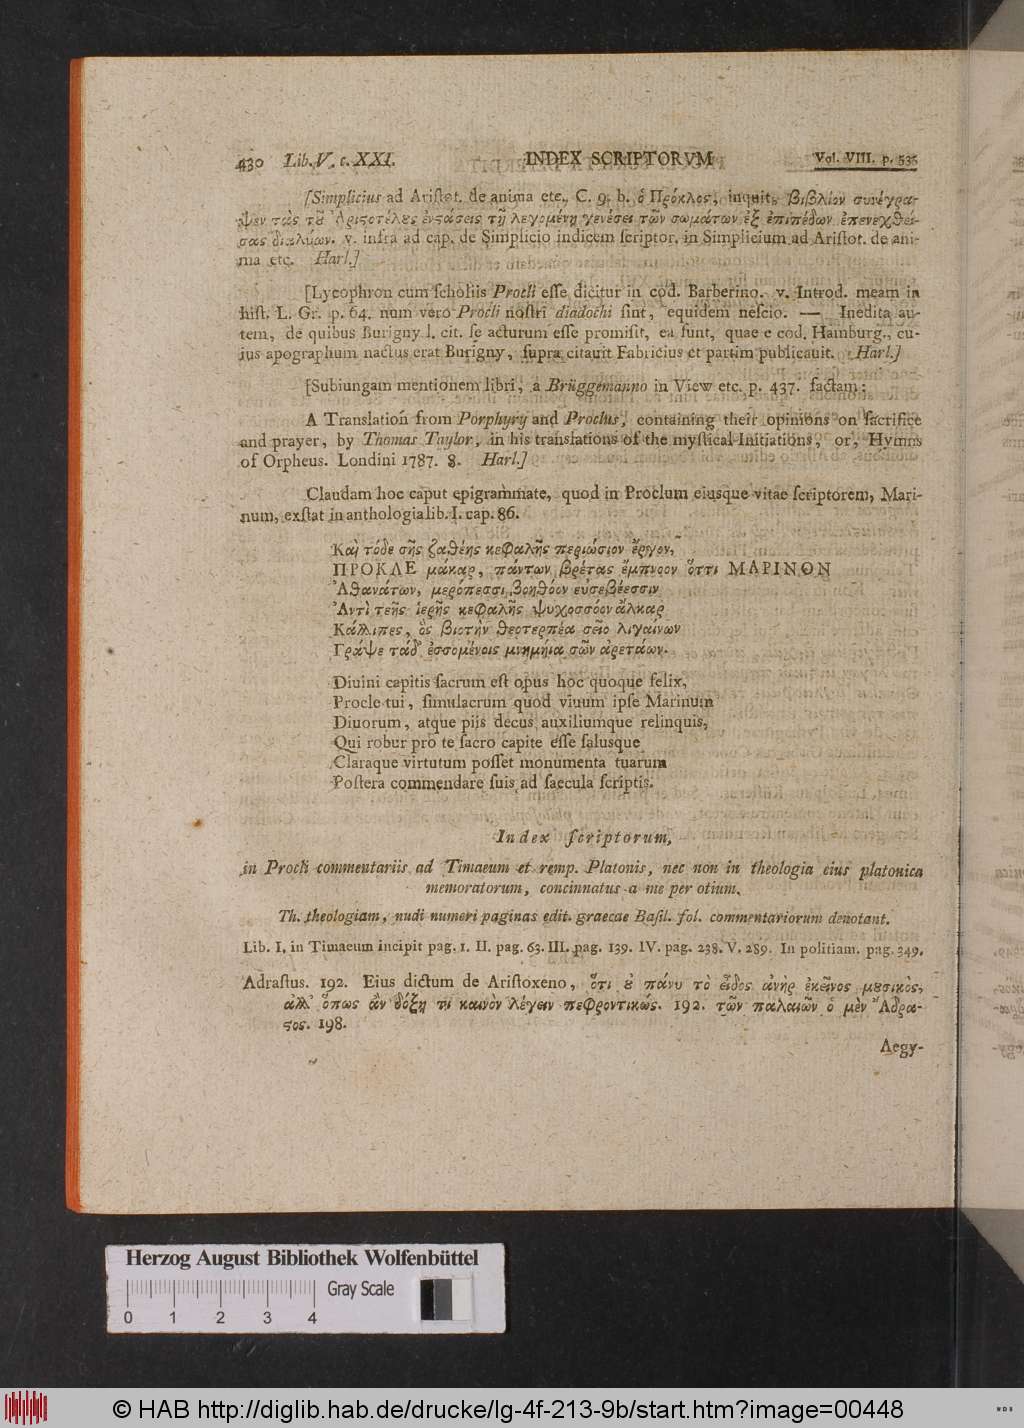 430 Lib. V. c. XXI. INDEX SCRIPTORVM Vol. VIII. p. 535
[Simplicius ad Aristot. de anima etc., C. 9. b. ὁ Πρόκλος, inquit, βιβλίον συνέγρα-
ψεν τὰς τȣ̃ Ἀριϛοτέλȣς ἐνϛάσεις τῇ λεγομένῃ γενέσει τῶν σωμάτων ἐξ ἐπιπέδων ἐπενεχθεί-
σας διαλύων. v. infra ad cap. de Simplicio indicem scriptor. in Simplicium ad Aristot. de ani-
ma etc. Harl.]
[Lycophron cum scholiis Procli esse dicitur in cod. Barberino. v. Introd. meam in
hist. L. Gr. p. 64. num vero Procli nostri diadochi sint, equidem nescio. — Inedita au-
tem, de quibus Burigny l. cit. se acturum esse promisit, ea sunt, quae e cod. Hamburg., cu-
ius apographum nactus erat Burigny, supra citauit Fabricius et partim publicauit. Harl.]
[Subiungam mentionem libri, a Brüggemanno in View etc. p. 437. factam:
A Translation from Porphyry and Proclus, containing their opinions on sacrifice
and prayer, by Thomas Taylor, in his translations of the mystical Initiations, or, Hymns
of Orpheus. Londini 1787. 8. Harl.]
Claudam hoc caput epigrammate, quod in Proclum eiusque vitae scriptorem, Mari-
num, exstat in anthologia lib. I. cap. 86.
Καὶ τόδε σῆς ζαθέης κεφαλῆς περιώσιον ἔργον,
ΠΡΟΚΛΕ μάκαρ, πάντων βρέτας ἔμπνοον ὅττι ΜΑΡΙΝΟΝ
Ἀθανάτων, μερόπεσσι βοηθόον εὐσεβέεσσιν
Ἀντὶ τεῆς ἱερῆς κεφαλῆς ψυχοσσόον ἄλκαρ
Κάλλιπες, ὃς βιοτὴν θεοτερπέα σεῖο λιγαίνων
Γράψε τάδ᾽ ἐσσομένοις μνημήια σῶν ἀρετάων.
Diuini capitis sacrum est opus hoc quoque felix,
Procle tui, simulacrum quod viuum ipse Marinum
Diuorum, atque piis decus auxiliumque relinquis,
Qui robur pro te sacro capite esse salusque
Claraque virtutum posset monumenta tuarum
Postera commendare suis ad saecula scriptis.
Index scriptorum,
in Procli commentariis ad Timaeum et remp. Platonis, nec non in theologia eius platonica
memoratorum, concinnatus a me per otium.
Th. theologiam, nudi numeri paginas edit. graecae Basil. fol. commentariorum denotant.
Lib. I. in Timaeum incipit pag. 1. II. pag. 63. III. pag. 139. IV. pag. 238. V. 289. In politiam. pag. 349.
Adrastus. 192. Eius dictum de Aristoxeno, ὅτι ȣ̓ πάνυ τὸ εἶδος ἀνὴρ ἐκεῖνος μȣσικὸς,
ἀλλ᾽ ὅπως ἂν δόξῃ τι καινὸν λέγειν πεφροντικώς. 192. τῶν παλαιῶν ὁ μὲν Ἄδρα-
ϛος. 198.
Aegy-
Herzog August Bibliothek Wolfenbüttel
Gray Scale
0 1 2 3 4
© HAB http://diglib.hab.de/drucke/lg-4f-213-9b/start.htm?image=00448